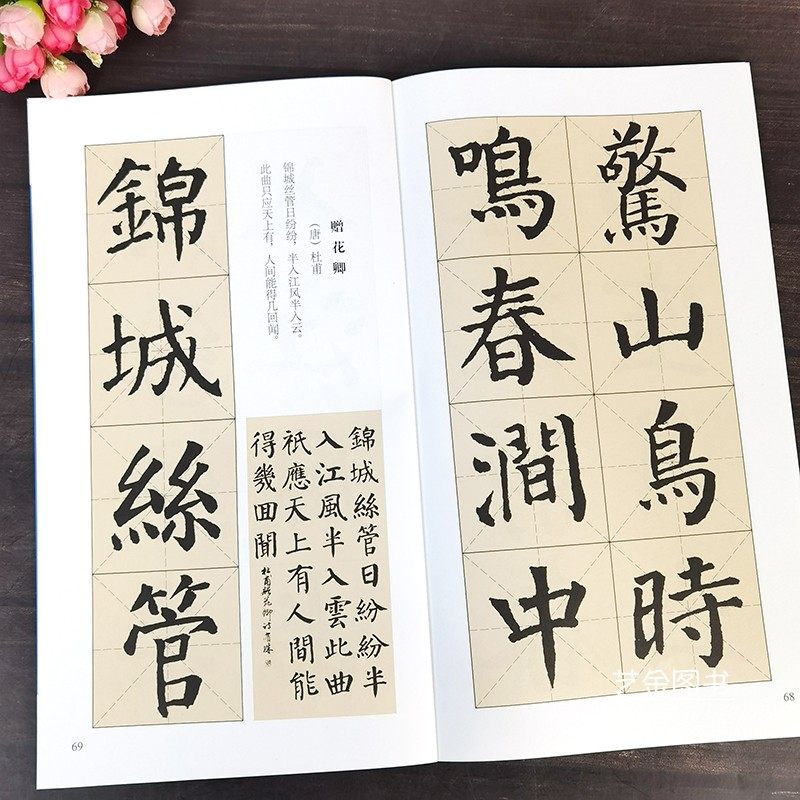 驚山鳥時
鳴春澗中
68
赠花卿
（唐）杜甫
锦城丝管日纷纷，半入江风半入云。
此曲只应天上有，人间能得几回闻。
錦城絲管日紛紛半
入江風半入雲此曲
祇應天上有人間能
得幾回聞
杜甫贈花卿詩
錦城絲管
69
艺金图书